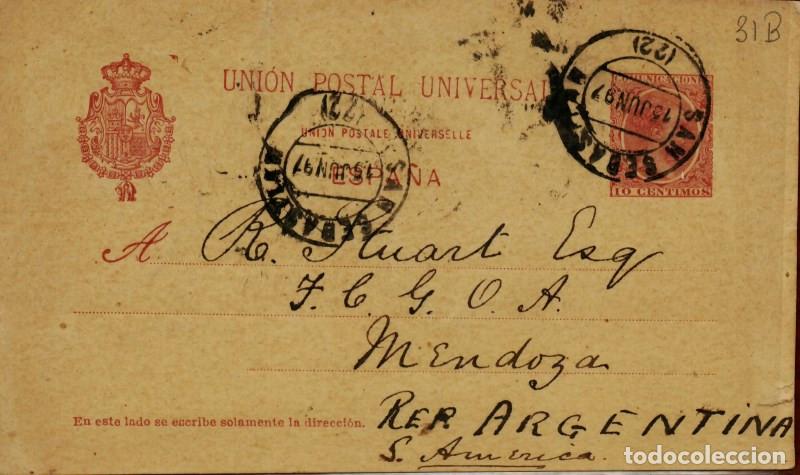 31B
UNIÓN POSTAL UNIVERSAL
UNION POSTALE UNIVERSELLE
ESPAÑA
COMUNICACIONES
10 CENTIMOS
SAN SEBASTIAN
15 JUN 97
(22)
SAN SEBASTIAN
15 JUN 97
(22)
A R. Stuart Esq
F. C. G. O. A.
Mendoza
REP ARGENTINA
S. America
En este lado se escribe solamente la dirección.
todocoleccion